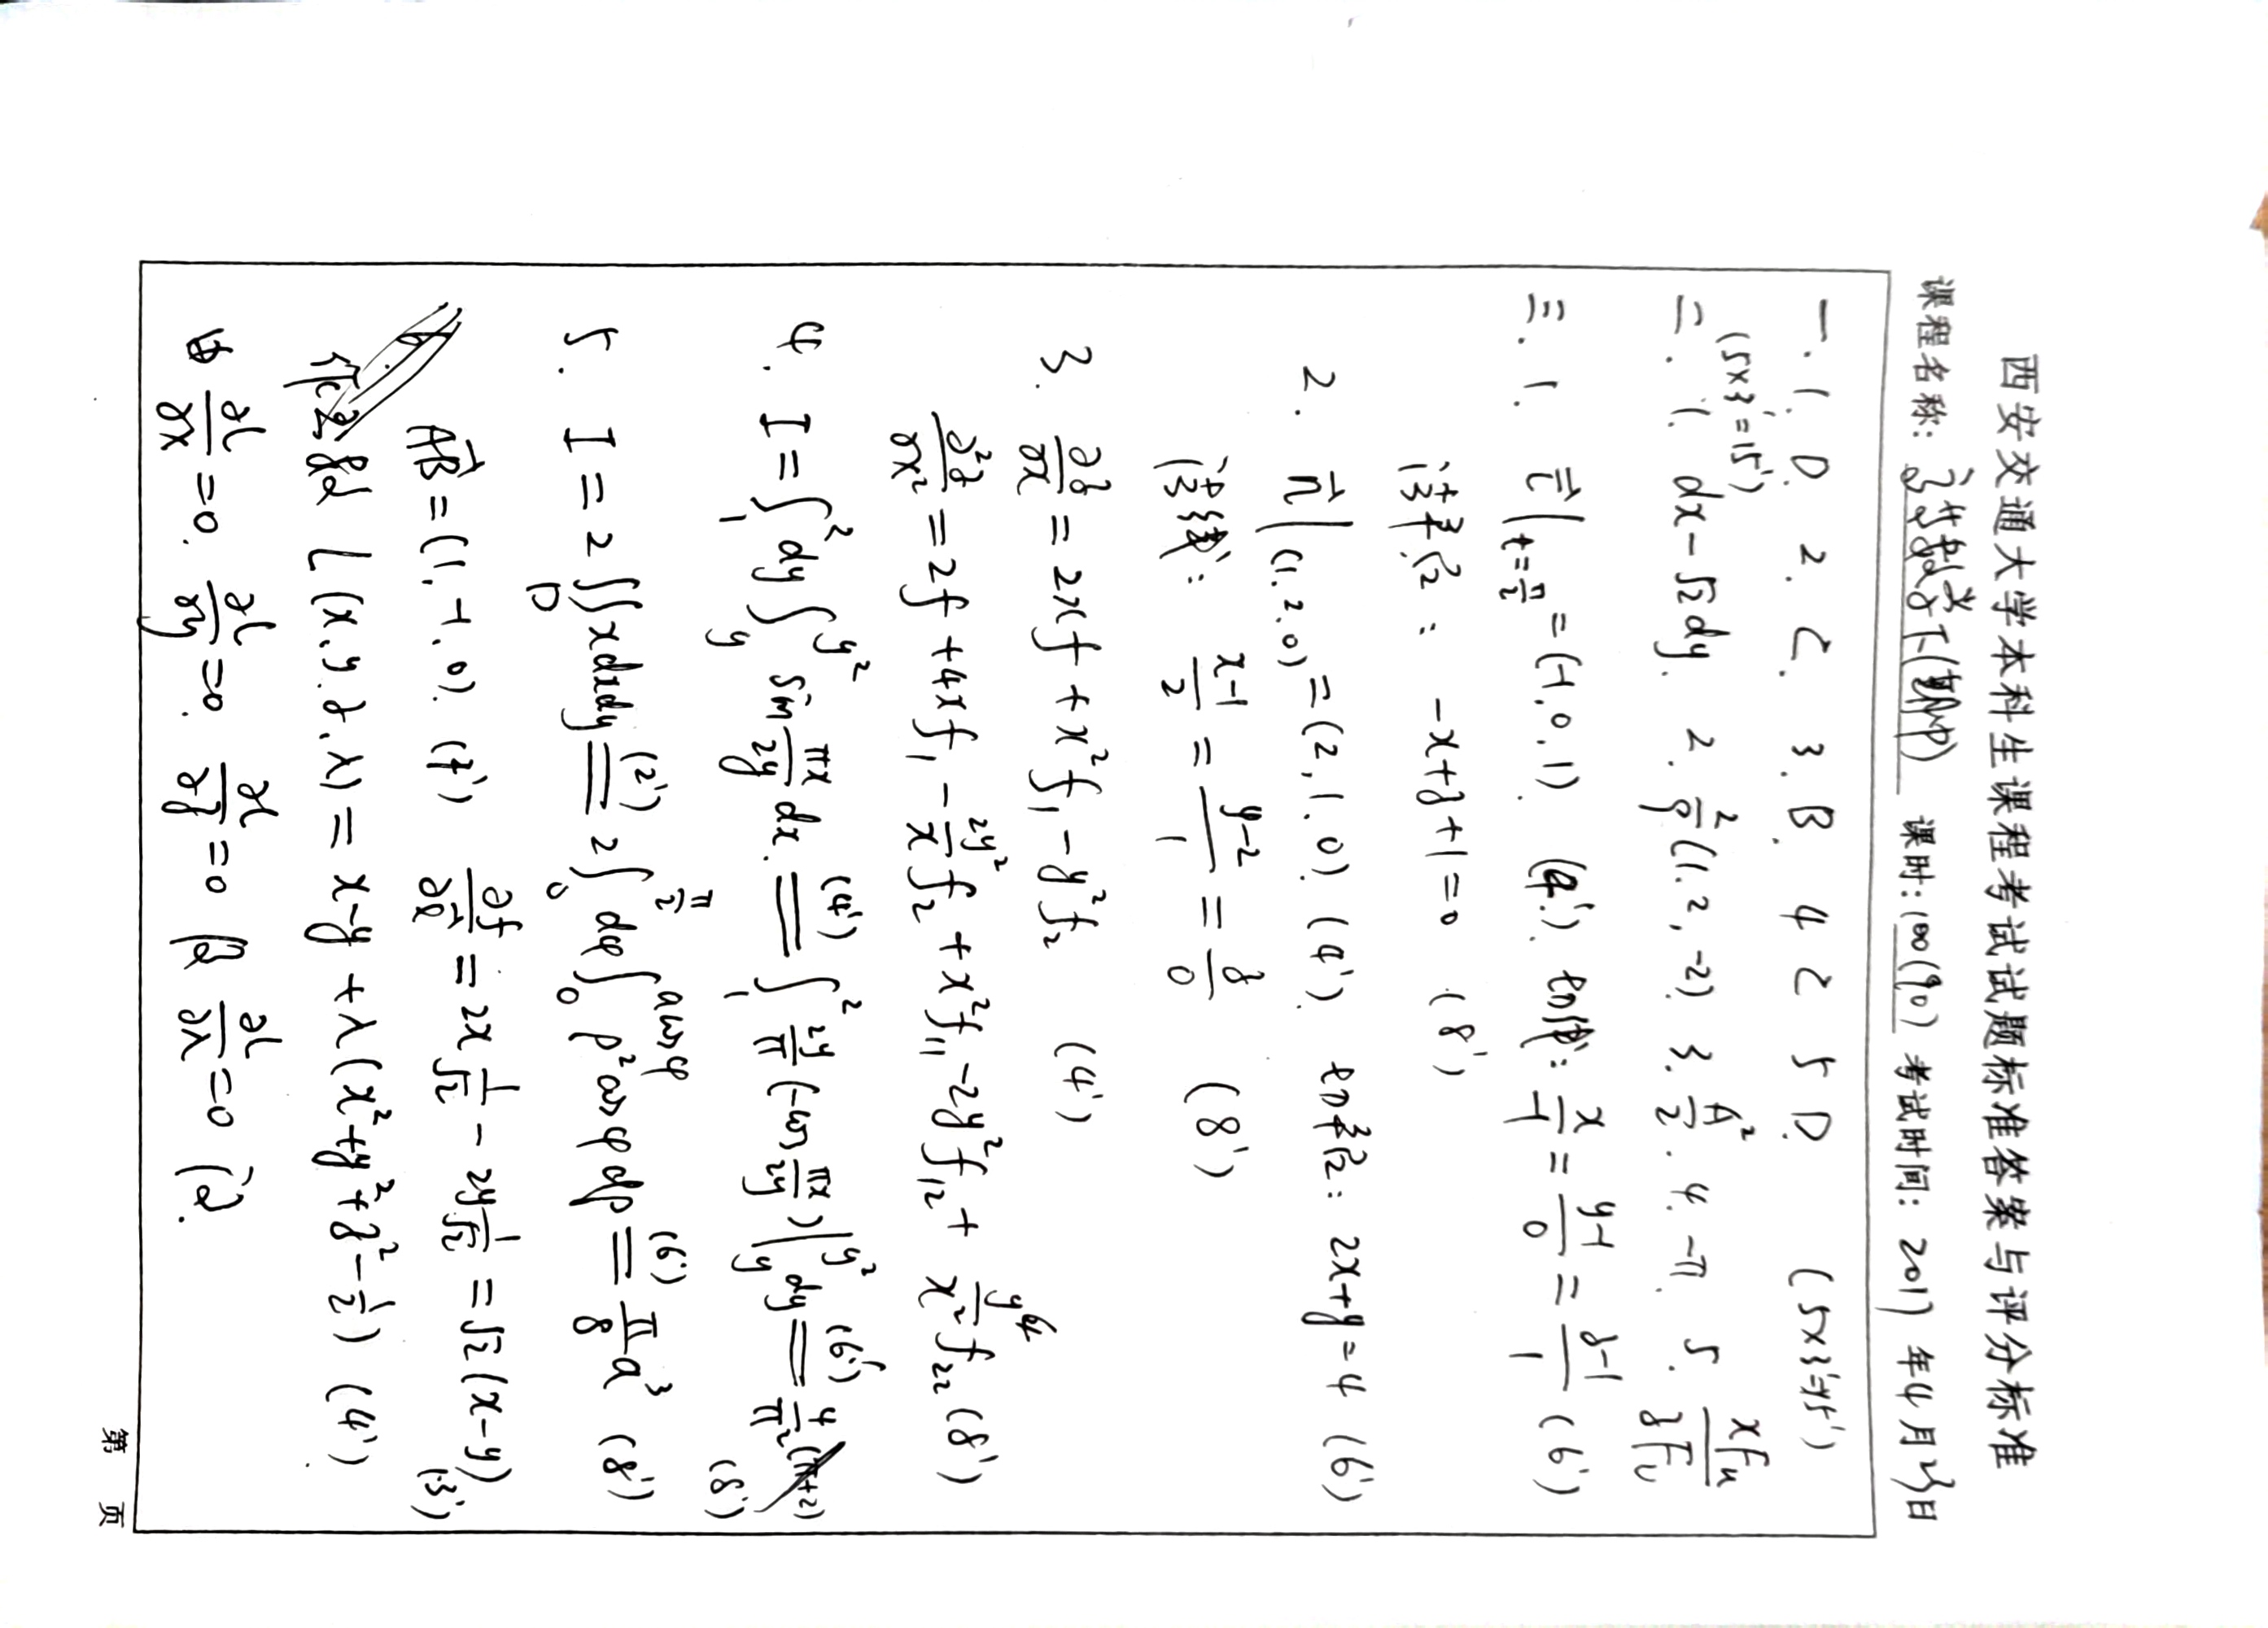 西安交通大学本科生课程考试试题标准答案与评分标准
课程名称: 高等数学下(期中) 课时: 100(90) 考试时间: 2017年4月23日
一. 1. D. 2. C. 3. B. 4 C 5 D. (5×3'=15')
(5×3'=15')
二. 1. dx-√2dy. 2. 2/9(1,2,-2). 3. A²/2. 4. -π. 5. xFu/zFv
三. 1. τ⃗|t=π/2 =(-1,0,1). (4'). 切线: x/-1 = y-1/0 = z-1/1 (6')
法平面: -x+z+1=0 (8')
2. n⃗|(1,2,0) =(2,1,0). (4'). 切平面: 2x+y=4 (6')
法线: x-1/2 = y-2/1 = z/0 (8')
3. ∂z/∂x = 2xf + x²f₁ - y²f₂ (4')
∂²z/∂x² = 2f + 4xf₁ - 2y²/x f₂ + x²f₁₁ - 2y²f₁₂ + y⁴/x² f₂₂ (8')
4. I = ∫₁² dy ∫_y^{y²} sin πx/2y dx. =(4') ∫₁² 2y/π (-cos πx/2y)|_y^{y²} dy =(6') 4/π³(π+2) (8')
5. I = 2∬_D x dxdy =(2') 2∫₀^{π/2} dφ ∫₀^{acosφ} ρ²cosφ dρ =(6') π/8 a³ (8')
AB⃗ = (1,-1,0). (1') ∂f/∂l⃗ = 2x 1/√2 - 2y 1/√2 = √2(x-y) (3')
作函数 L(x,y,z,λ) = x-y+λ(x²+y²+z²-1/2) (4').
由 ∂L/∂x=0. ∂L/∂y=0. ∂L/∂z=0 及 ∂L/∂λ=0
第 页